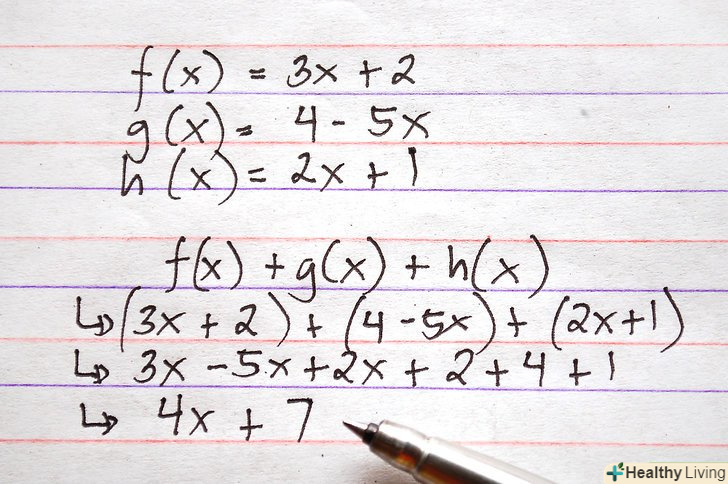 f(x) = 3x + 2
g(x) = 4 - 5x
h(x) = 2x + 1
f(x) + g(x) + h(x)
↳ (3x + 2) + (4 - 5x) + (2x + 1)
↳ 3x - 5x + 2x + 2 + 4 + 1
↳ 4x + 7
Healthy Living